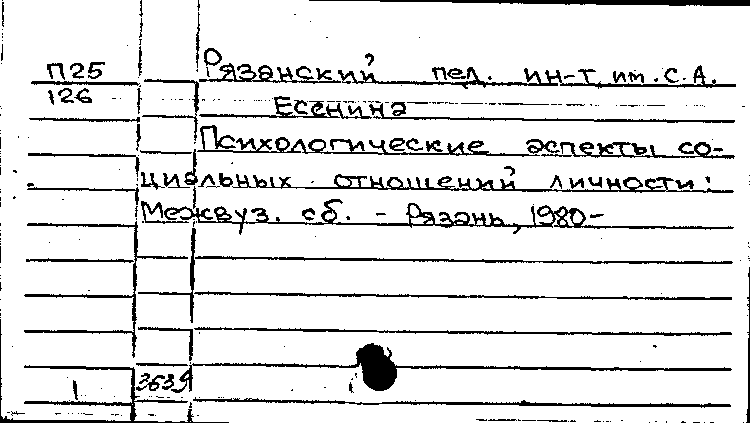 П25 Рязанский пед. ин-т им. С.А.
126 Есенина
Психологические аспекты со-
циальных отношений личности:
Межвуз. сб. - Рязань, 1980-
1